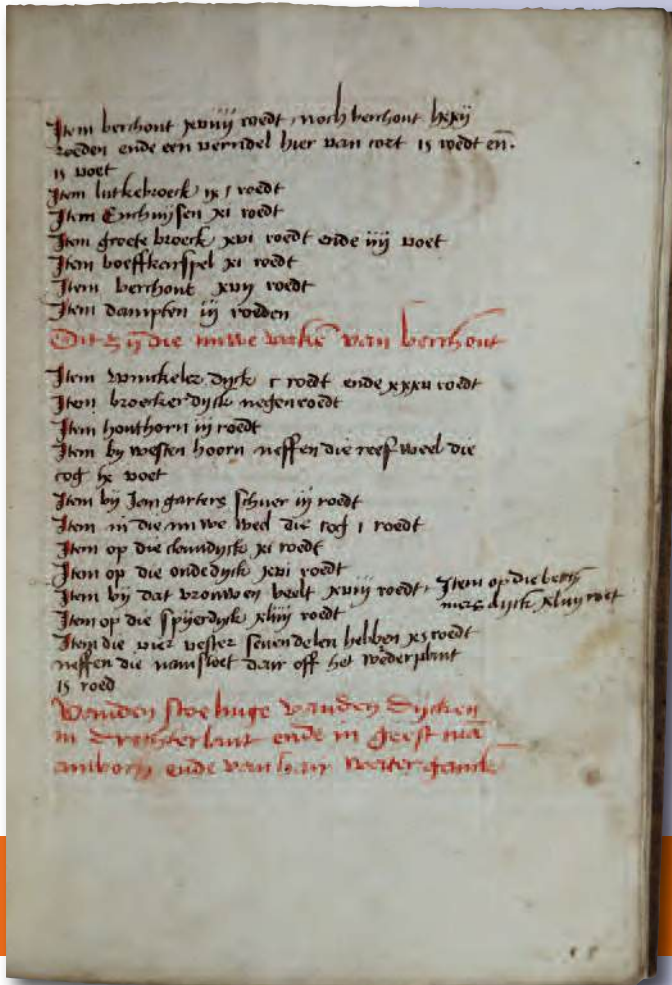 Item berchout xviiij roedt noch berchout lxxij
roeden ende een verndel hier van coet is roedt en̄
is voet
Item lutkebroeck ix j roedt
Item Enchuijsen xi roedt
Item groete broeck xvi roedt ende iiij voet
Item boeffkerspel xi roedt
Item berchout xvij roedt
Item dampten iij roeden
Dit zijn die nuwe van berchout
Item wincheler dijck c roedt ende roedt
Item broecker dijck negen roedt
Item honthorn iij roedt
Item by westen hoorn neffen die reef weel die
cog lx voet
Item bij Jan garters schuer iij roedt
Item in die nuwe weel die cog i roedt
Item op die dijck xi roedt
Item op die oudedijck xvi roedt
Item bij dat vrouwen veelt xviij roedt Item op die
dijck xliiij roet
Item op die spijerdijck xliiij roedt
Item die vier vester sevendelen hebben roedt
neffen die dair off het
is roed
Vanden vanden Dijcken
in Drechterlant ende in geest
ambocht ende van hair water ganck